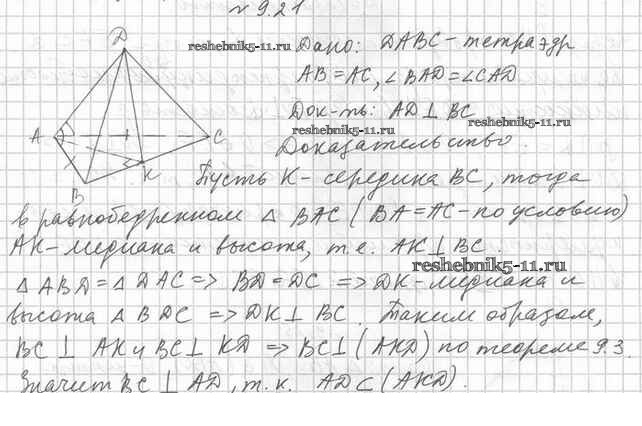 № 9.21
D
A
B
C
K
Дано: DABC - тетраэдр
AB = AC, ∠BAD = ∠CAD.
Док-ть: AD ⊥ BC
Доказательство.
Пусть K - середина BC, тогда
в равнобедренном △ BAC (BA = AC - по условию)
AK - медиана и высота, т.е. AK ⊥ BC.
△ ABD = △ DAC => BD = DC => DK - медиана и
высота △ BDC => DK ⊥ BC. Таким образом,
BC ⊥ AK и BC ⊥ KD => BC ⊥ (AKD) по теореме 9.3.
Значит BC ⊥ AD, т.к. AD ⊂ (AKD).
reshebnik5-11.ru
reshebnik5-11.ru
reshebnik5-11.ru
reshebnik5-11.ru